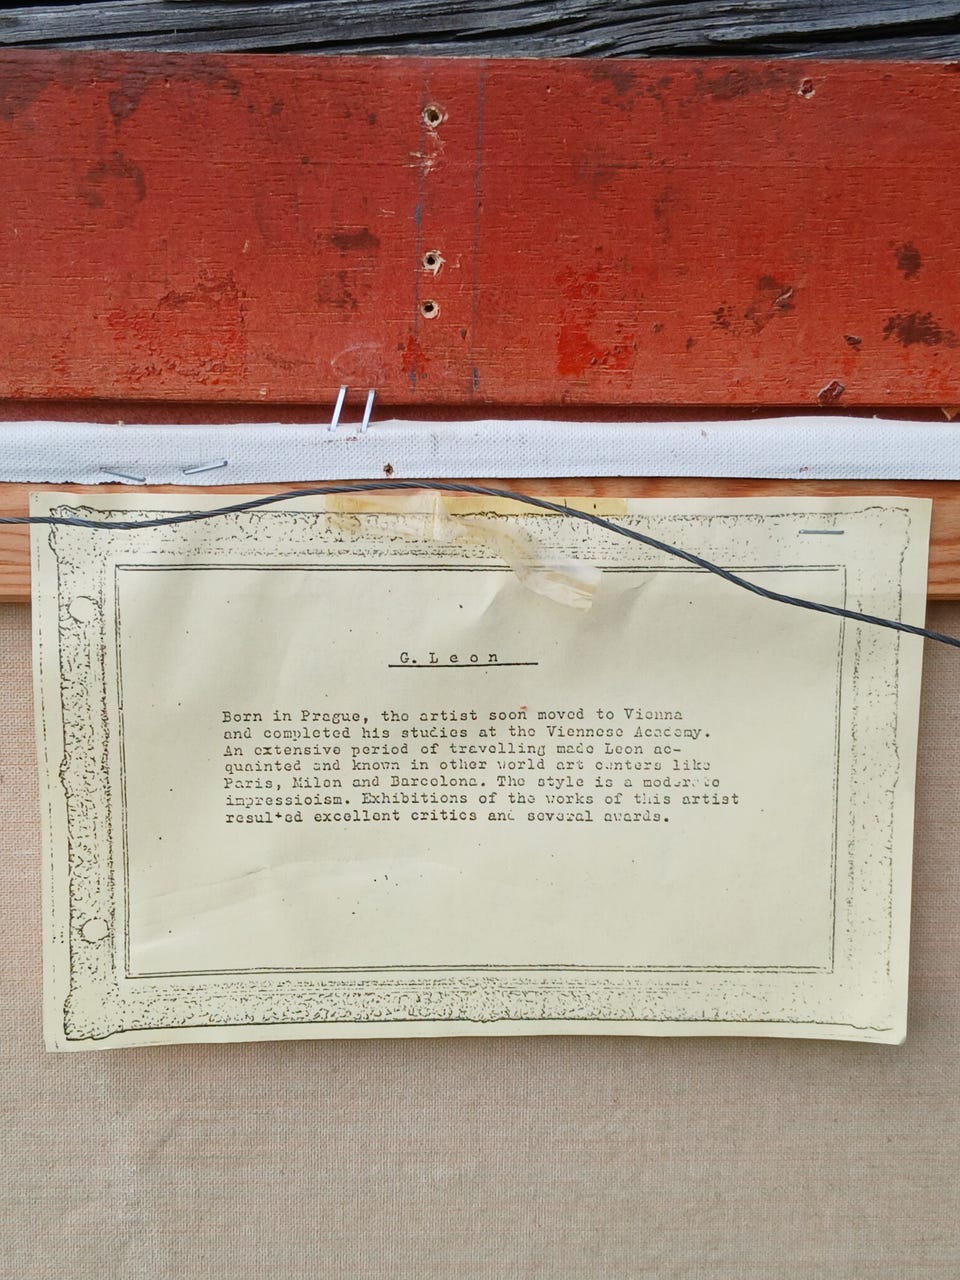 G. Leon
Born in Prague, the artist soon moved to Vienna
and completed his studies at the Viennese Academy.
An extensive period of travelling made Leon ac-
quainted and known in other world art centers like
Paris, Milan and Barcelona. The style is a moderate
impressioism. Exhibitions of the works of this artist
resulted excellent critics and several awards.